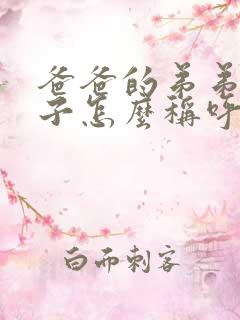 爸爸的弟弟
子怎麼稱呼
白而刺客